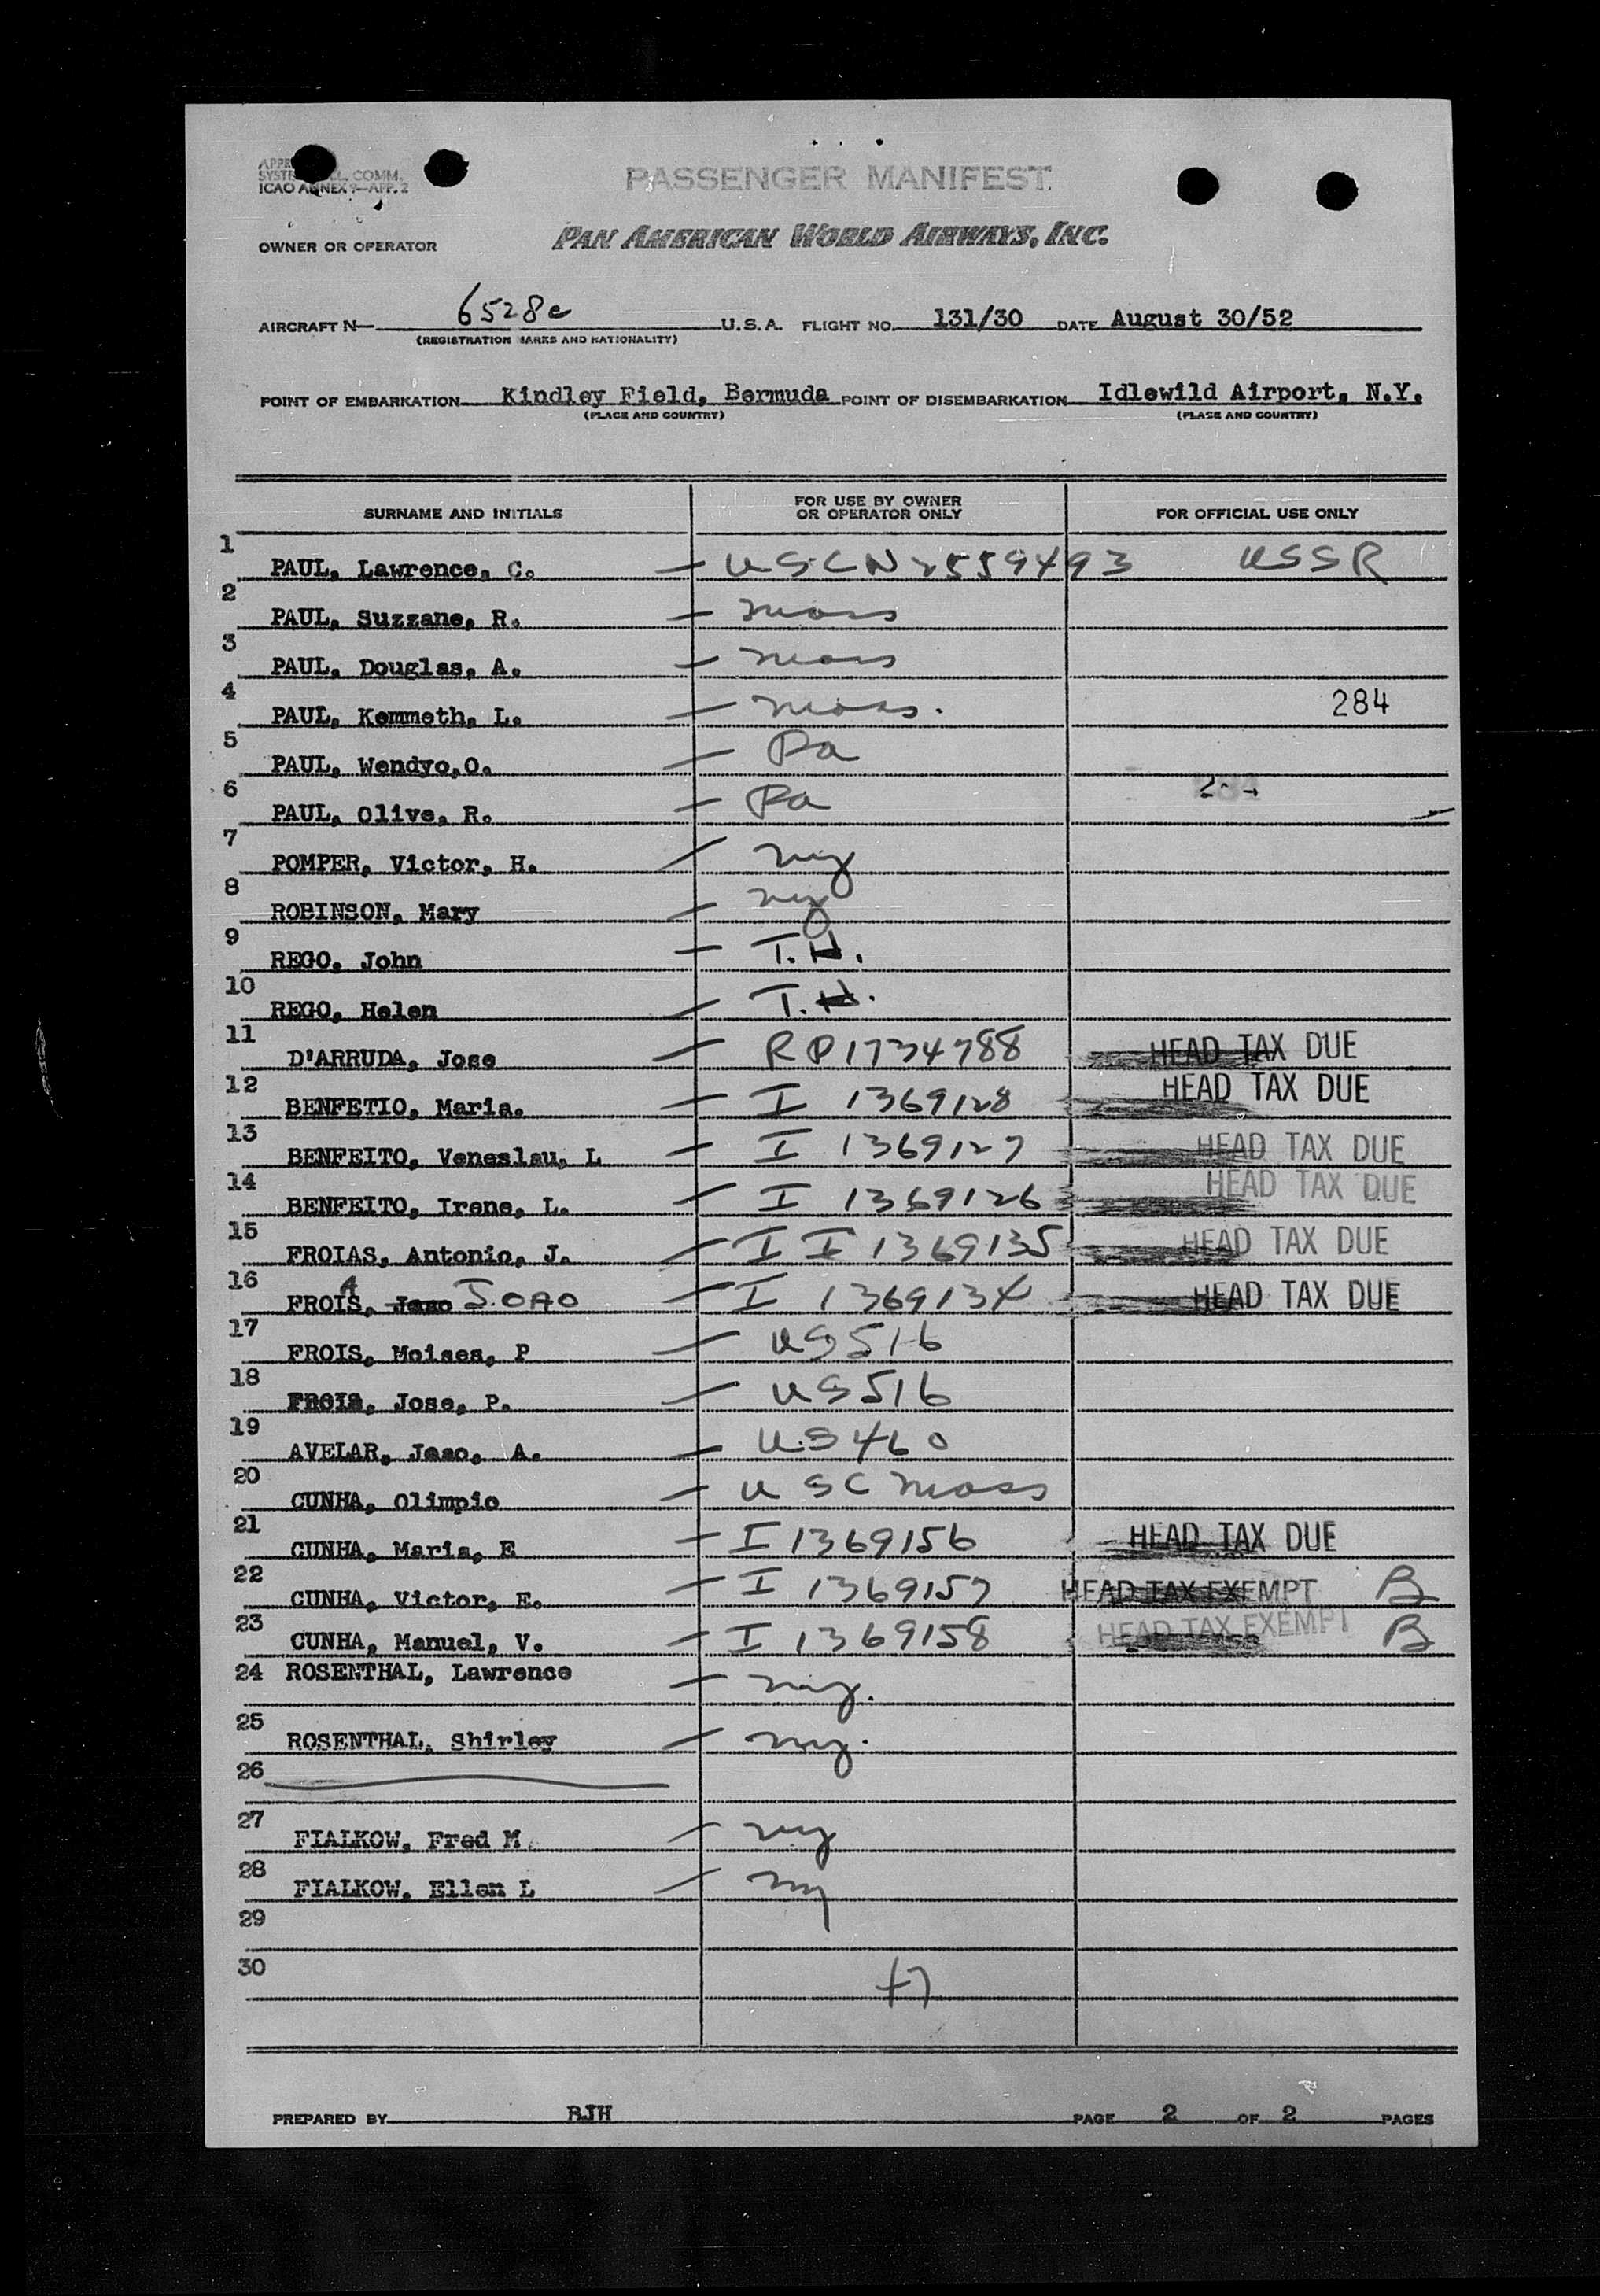 ICAO ANNEX 9—APP. 2
PASSENGER MANIFEST
OWNER OR OPERATOR PAN AMERICAN WORLD AIRWAYS, INC.
AIRCRAFT N— 6528c U.S.A. FLIGHT NO. 131/30 DATE August 30/52
(REGISTRATION MARKS AND NATIONALITY)
POINT OF EMBARKATION Kindley Field, Bermuda POINT OF DISEMBARKATION Idlewild Airport, N.Y.
(PLACE AND COUNTRY) (PLACE AND COUNTRY)
SURNAME AND INITIALS FOR USE BY OWNER OR OPERATOR ONLY FOR OFFICIAL USE ONLY
1 PAUL, Lawrence, C. — USCN 2559493 USSR
2 PAUL, Suzzane, R. — Mass
3 PAUL, Douglas, A. — Mass
4 PAUL, Kemmeth, L. — Mass. 284
5 PAUL, Wendyo,O. — Pa
6 PAUL, Olive, R. — Pa
7 POMPER, Victor, H. — ny
8 ROBINSON, Mary — ny
9 REGO, John — T.H.
10 REGO, Helen — T.H.
11 D'ARRUDA, Jose — RP1734788 HEAD TAX DUE
12 BENFETIO, Maria. — I 1369128 HEAD TAX DUE
13 BENFEITO, Veneslau, L — I 1369127 HEAD TAX DUE
14 BENFEITO, Irene, L. — I 1369126 HEAD TAX DUE
15 FROIAS, Antonio, J. — I I 1369135 HEAD TAX DUE
16 FROIS, A JOAO — I 1369134 HEAD TAX DUE
17 FROIS, Moises, P — US516
18 FROIS, Jose, P. — US516
19 AVELAR, Jaao, A. — US460
20 CUNHA, Olimpio — USC Mass
21 CUNHA, Maria, E — I 1369156 HEAD TAX DUE
22 CUNHA, Victor, E. — I 1369157 HEAD TAX EXEMPT B
23 CUNHA, Manuel, V. — I 1369158 HEAD TAX EXEMPT B
24 ROSENTHAL, Lawrence — ny.
25 ROSENTHAL, Shirley — ny.
26
27 FIALKOW, Fred M. — ny
28 FIALKOW, Ellen L — ny
29
30
PREPARED BY BJH PAGE 2 OF 2 PAGES